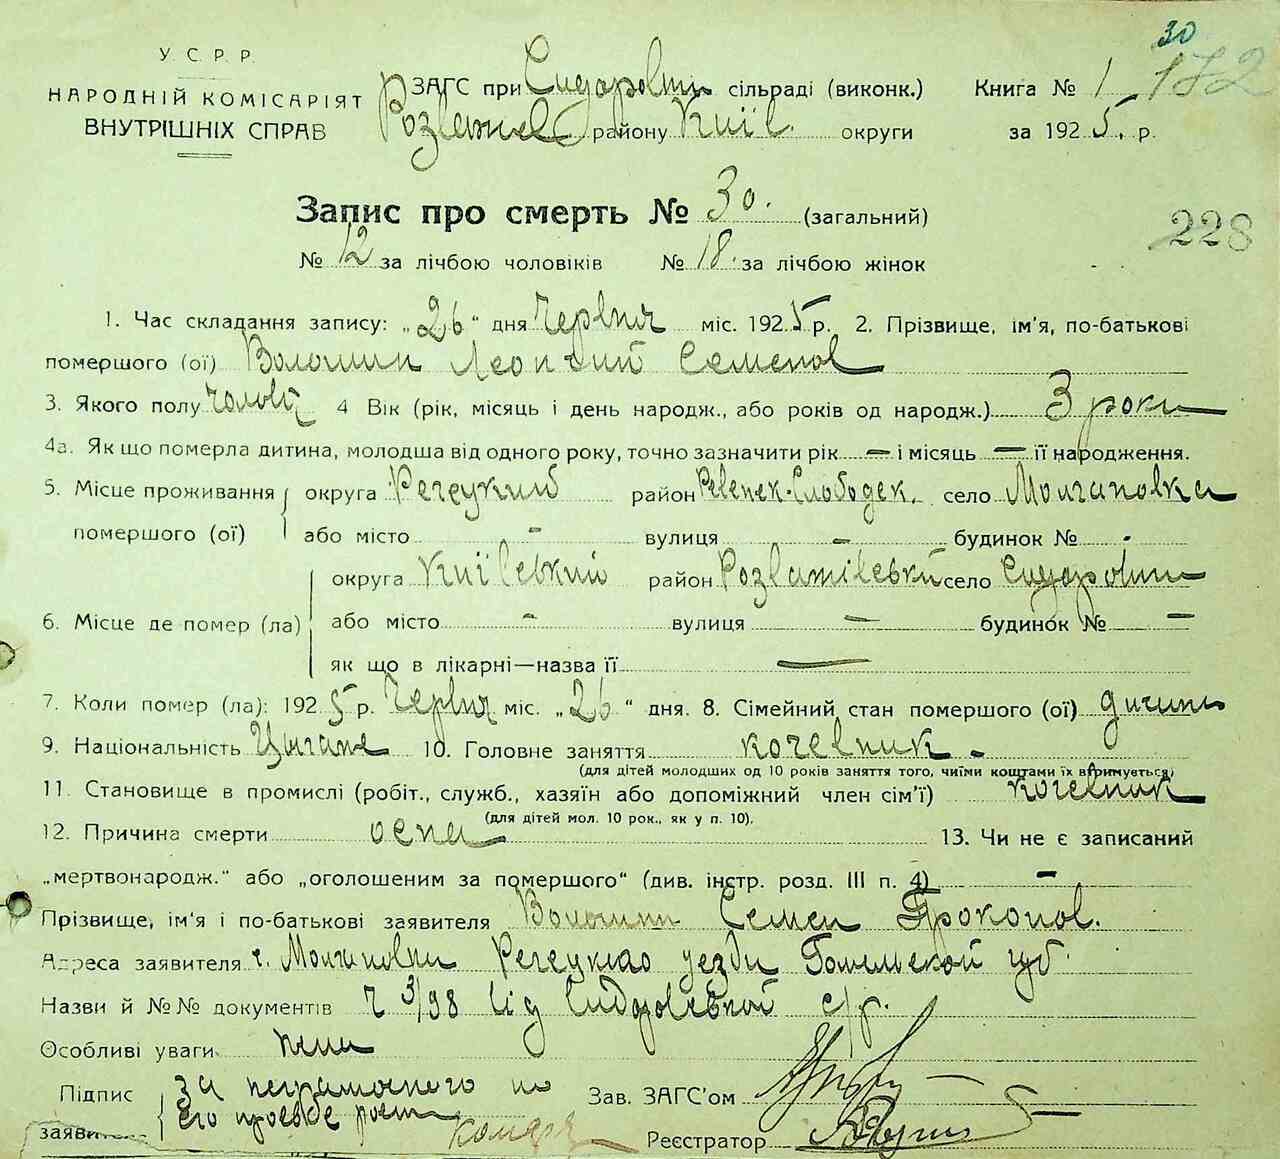 30
У. С. Р. Р.
НАРОДНІЙ КОМІСАРІЯТ
ВНУТРІШНІХ СПРАВ
РЗАГС при Сидоровти сільраді (виконк.) Книга № 1 172
Розважев району Київ. округи за 1925. р.
Запис про смерть № 30. (загальний)
228
№ 12 за лічбою чоловіків № 18. за лічбою жінок
1. Час складання запису: „26" дня Червня міс. 1925 р. 2. Прізвище, ім'я, по-батькові
помершого (ої) Волошин Леонтий Семенов
3. Якого полу чоловіч 4 Вік (рік, місяць і день народж., або років од народж.) 3 роки
4а. Як що померла дитина, молодша від одного року, точно зазначити рік — і місяць — її народження.
5. Місце проживання округа Речецкий район село Молчановка
помершого (ої) або місто - вулиця - будинок № -
округа Київський район Розважівський село Сидоровичи
6. Місце де помер (ла) або місто - вулиця — будинок № —
як що в лікарні—назва її —
7. Коли помер (ла): 1925 р. Червня міс. „26" дня. 8. Сімейний стан помершого (ої) дичина
9. Національність Цыгане 10. Головне заняття кочевник -
(для дітей молодших од 10 років заняття того, чиїми коштами їх втримується)
11. Становище в промислі (робіт., служб., хазяїн або допоміжний член сім'ї) кочевник
(для дітей мол. 10 рок., як у п. 10).
12. Причина смерти оспа 13. Чи не є записаний
„мертвонародж." або „оголошеним за помершого" (див. інстр. розд. III п. 4) -
Прізвище, ім'я і по-батькові заявителя Волошин Семен Прокопов.
Адреса заявителя с. Молчановки Речецкаго уезда Гомельской губ.
Назви й №№ документів Ч 3/98 від Сидоровской с/р.
Особливі уваги
Підпис за неграмотного по Зав. ЗАГС'ом
его просьбе росп
заявителя Реєстратор